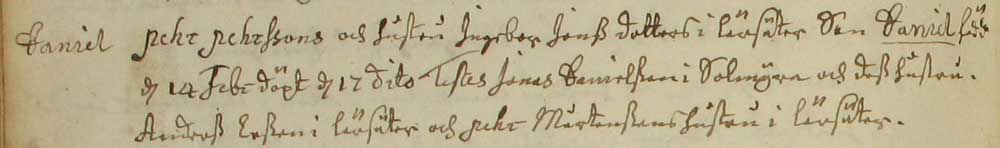 Daniel Pehr Pehrssons och hustru Ingebor Jonß dotters i Lärsäter Son Daniel föd
d 14 Febr döpt d 17 dito Testes Jonas Danielsson i Solmyra och deß hustru.
Anders Erßon i Lärsäter och Pehr Mårtenßons hustru i Lärsäter.